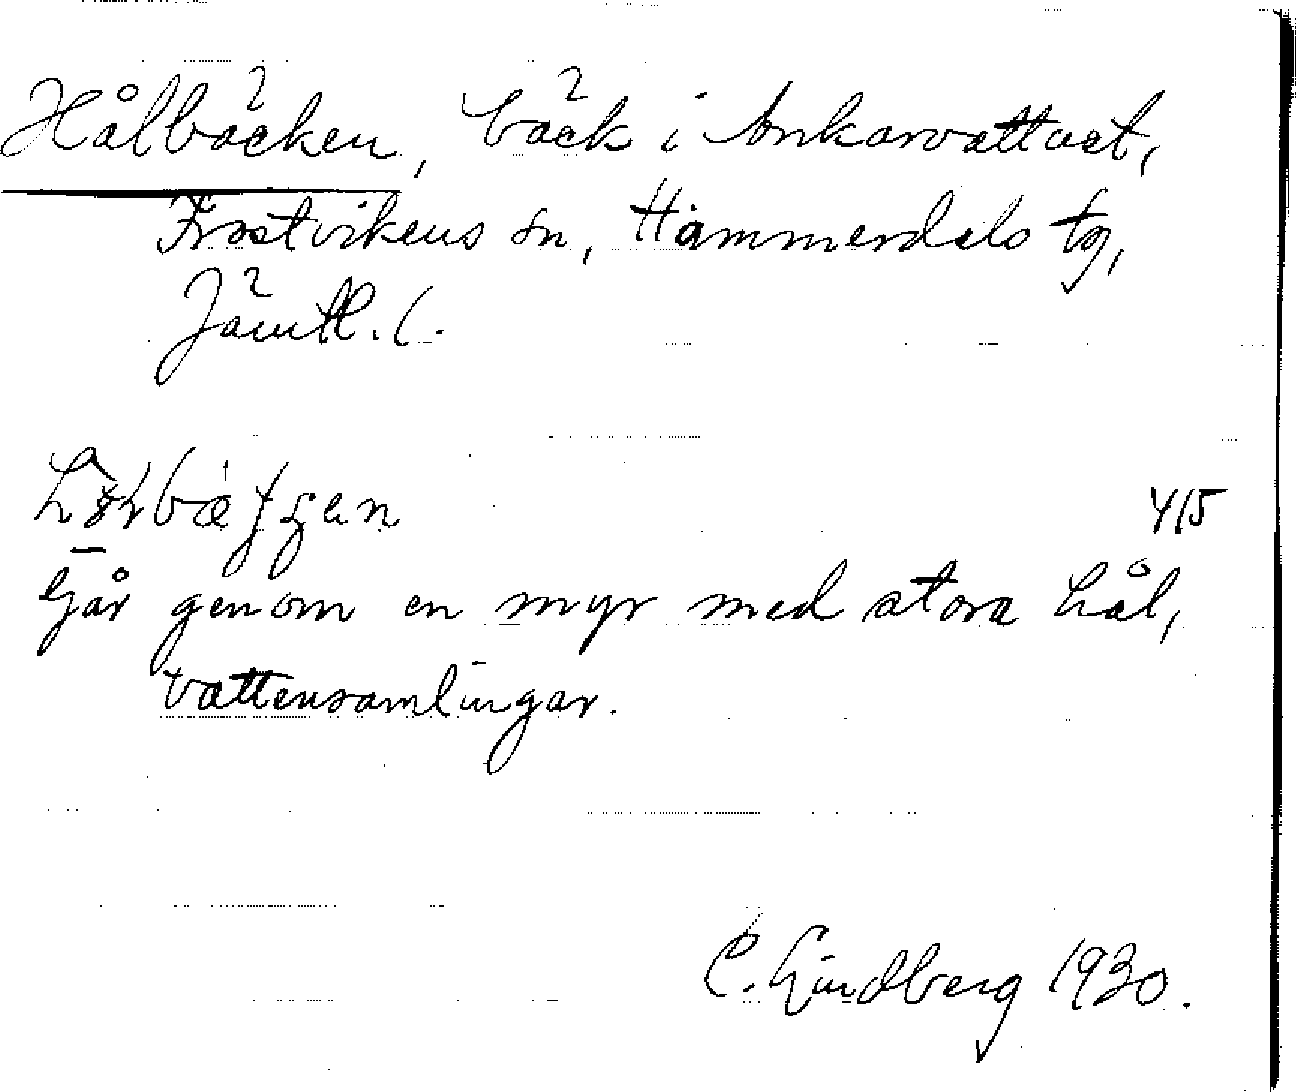 Hålbäcken, bäck i Ankarvattnet,
Frostvikens sn, Hammerdals tg,
Jämtl. l.
415
Går genom en myr med stora hål,
vattensamlingar.
C. Lindberg 1930.